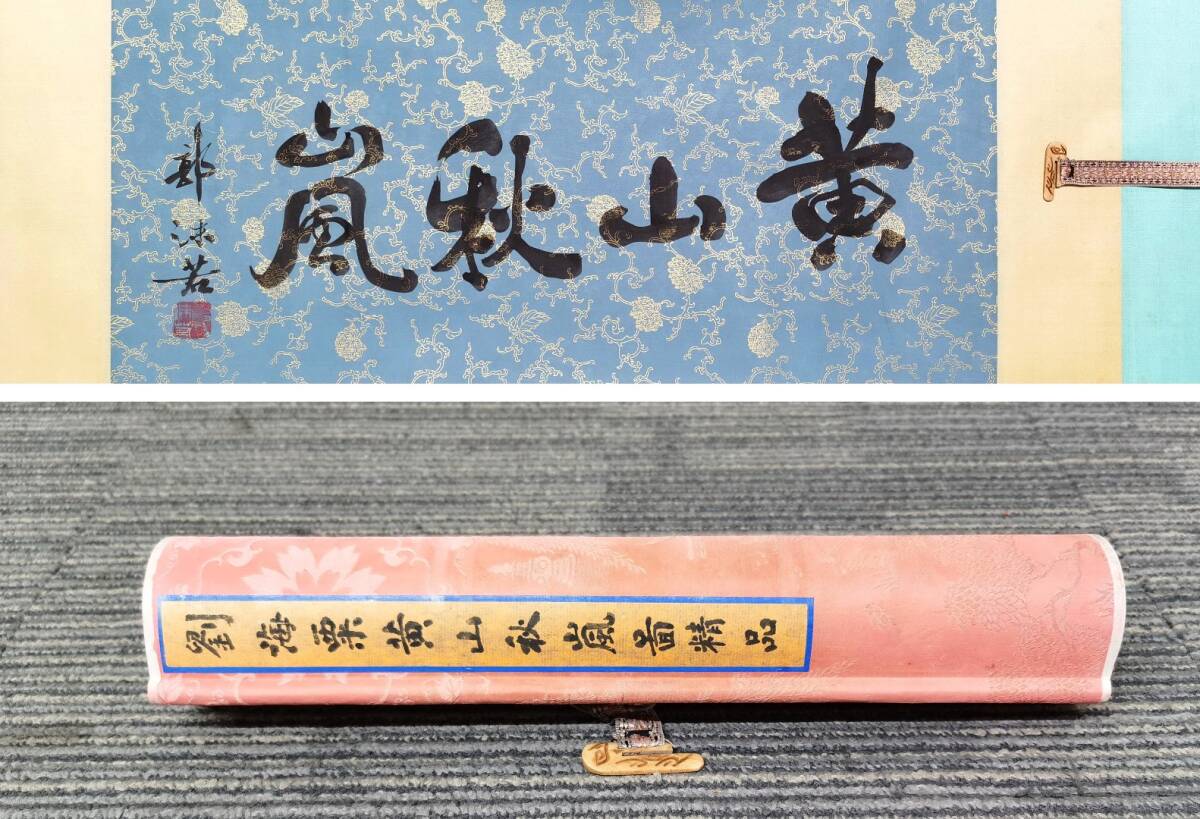 黄山秋嵐
郭沫若
劉海粟黄山秋嵐啚精品